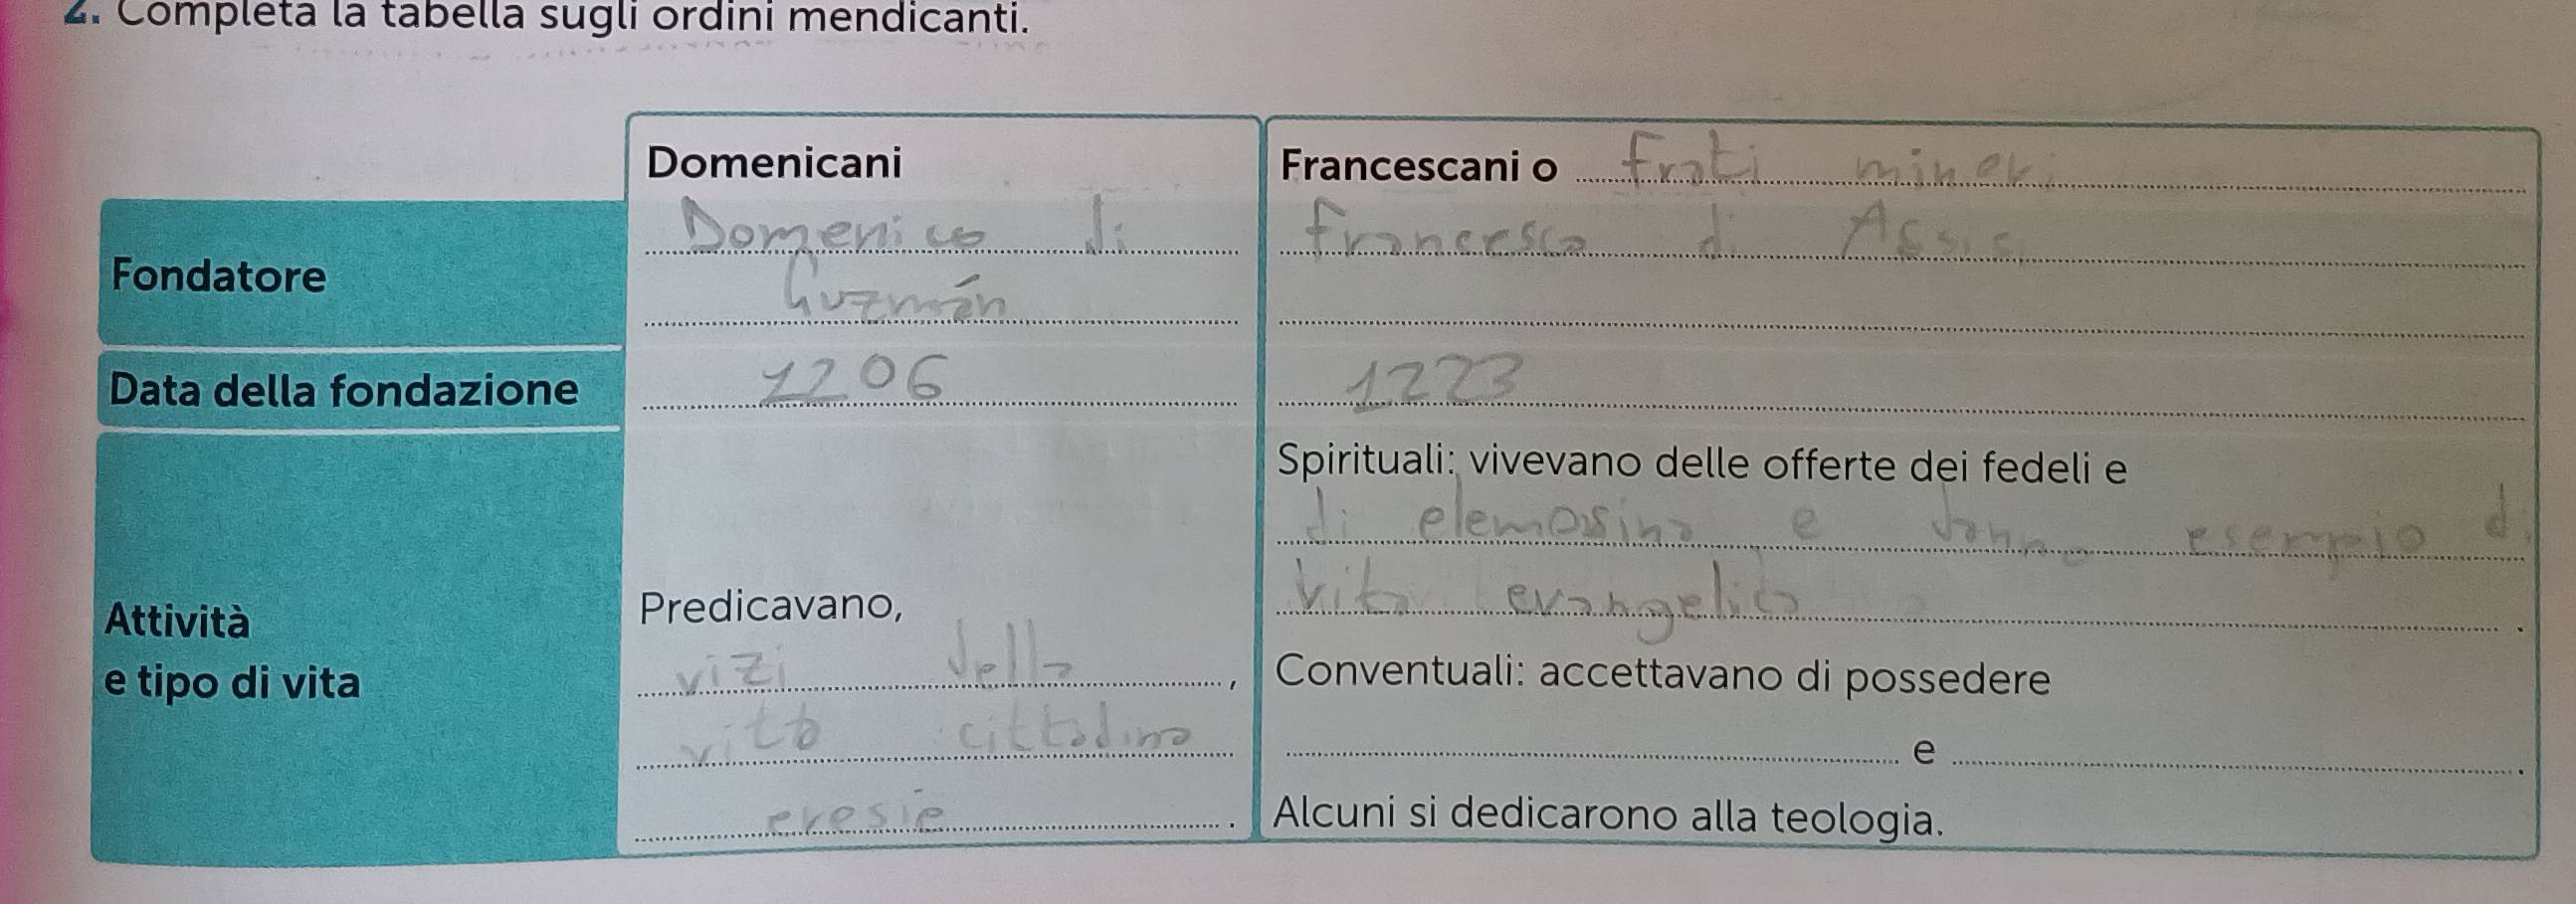 2. Completa la tabella sugli ordini mendicanti.
Domenicani
Francescani o frati minori
Fondatore
Domenico di
Guzmán
Francesco di Assisi
Data della fondazione
1206
1223
Attività
e tipo di vita
Predicavano,
vizi della,
vita cittadina
eresie.
Spirituali: vivevano delle offerte dei fedeli e
di elemosina e danno esempio di
vita evangelica.
Conventuali: accettavano di possedere
e.
Alcuni si dedicarono alla teologia.